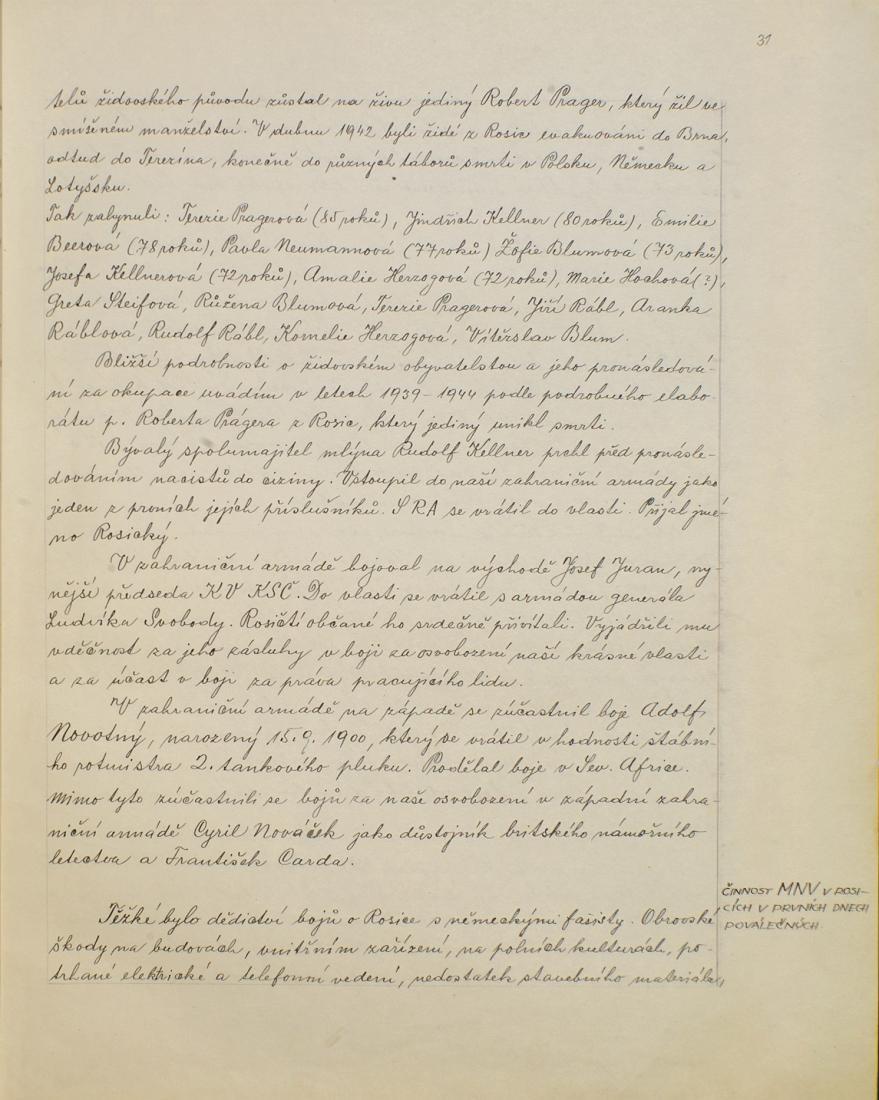 31
telů židovského původu zůstal na živu jediný Robert Prager, který žil ve
smíšeném manželství. V dubnu 1942 byli židé z Rosic evakuováni do Brna,
odtud do Terezína, konečně do různých táborů smrti v Polsku, Německu a
Lotyšsku.
Tak zahynuli: Terezie Pragerová (85 roků), Jindřich Kellner (80 roků), Emilie
Beerová (78 roků), Pavla Neumannová (77 roků) Žofie Blumová (73 roků),
Josefa Kellnerová (72 roků), Amalie Herzogová (72 roků), Marie Hochová (?),
Greta Steifová, Růžena Blumová, Terezie Pragerová, Jiří Rábl, Aranka
Ráblová, Rudolf Rábl, Kornelie Herzogová, Vítězslav Blum.
Bližší podrobnosti o židovském obyvatelstvu a jeho pronásledová-
ní za okupace uvádím v letech 1939-1944 podle podrobného elabo-
rátu p. Roberta Prágera z Rosic, který jediný unikl smrti.
Bývalý spolumajitel mlýna Rudolf Kellner prchl před pronásle-
dováním nacistů do ciziny. Vstoupil do naší zahraniční armády jako
jeden z prvních jejích příslušníků. S RA se vrátil do vlasti. Přijal jmé-
no Rosický.
V zahraniční armádě bojoval na východě Josef Juran, ny-
nější předseda KV KSČ. Do vlasti se vrátil s armádou generála
Ludvíka Svobody. Rosičtí občané ho srdečně přivítali. Vyjádřili mu
vděčnost za jeho zásluhy v boji za osvobození naší krásné vlasti
a za účast v boji za práva pracujícího lidu.
V zahraniční armádě na západě se zúčastnil boje Adolf
Novotný, narozený 15.9.1900, který se vrátil v hodnosti štábní-
ho rotmistra 2. tankového pluku. Prodělal boje v Sev. Africe.
Mimo tyto zúčastnili se bojů za naše osvobození v západní zahra-
niční armádě Cyril Nováček jako důstojník britského námořního
letectva a František Carda.
ČINNOST MNV V ROSI-
CÍCH V PRVNÍCH DNECH
POVÁLEČNÝCH.
Těžké bylo dědictví bojů o Rosice s německými fašisty. Obrovské
škody na budovách, vnitřním zařízení, na polních kulturách, po-
trhané elektrické a telefonní vedení, nedostatek stavebního materiálu,